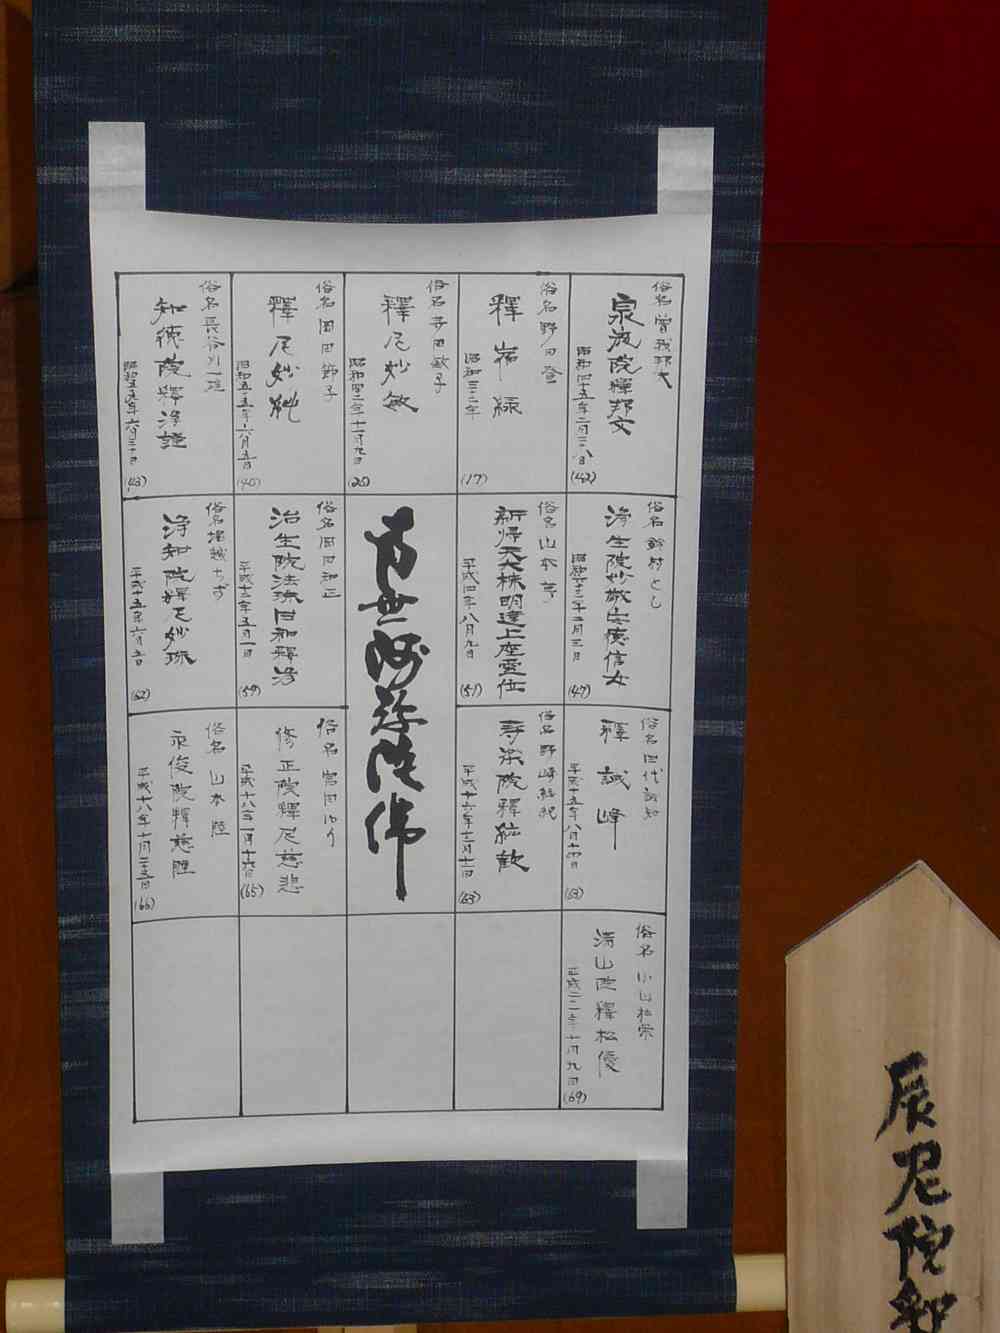 俗名 曽我邦夫
泉流院釋邦文
昭和四十五年二月二八日
(42)
俗名 野田登
釋
昭和三十二年
(17)
俗名 寺田敏子
釋尼妙敏
昭和四二年十一月九日
(25)
俗名 岡田節子
釋尼妙
昭和五十五年六月五日
(40)
俗名 長谷川一
知徳院釋浄謹
昭和五九年六月三十日
(43)
俗名 村とし
浄生院妙敬安徳信女
昭和六十二年二月三日
(47)
俗名 山本
新帰元大株明達上座霊位
平成四年八月九日
(51)
南無阿弥陀佛
俗名 岡田和正
治生院法珠日和釋浄
平成十二年五月一日
(59)
俗名 堀越ちず
浄和院釋尼妙珠
平成十五年六月五日
(62)
俗名 田代誠知
釋誠峰
平成十五年八月十四日
(63)
俗名 野崎紘紀
寿楽院釋紘歓
平成十六年十二月十二日
(63)
俗名 富田ゆり
修正院釋尼慈悲
平成十八年一月十六日
(65)
俗名 山本陸
永俊院釋慈陸
平成十八年十月二十五日
(66)
俗名 小山松栄
清山院釋松優
平成二二年十月九日
(69)
辰尼院釈